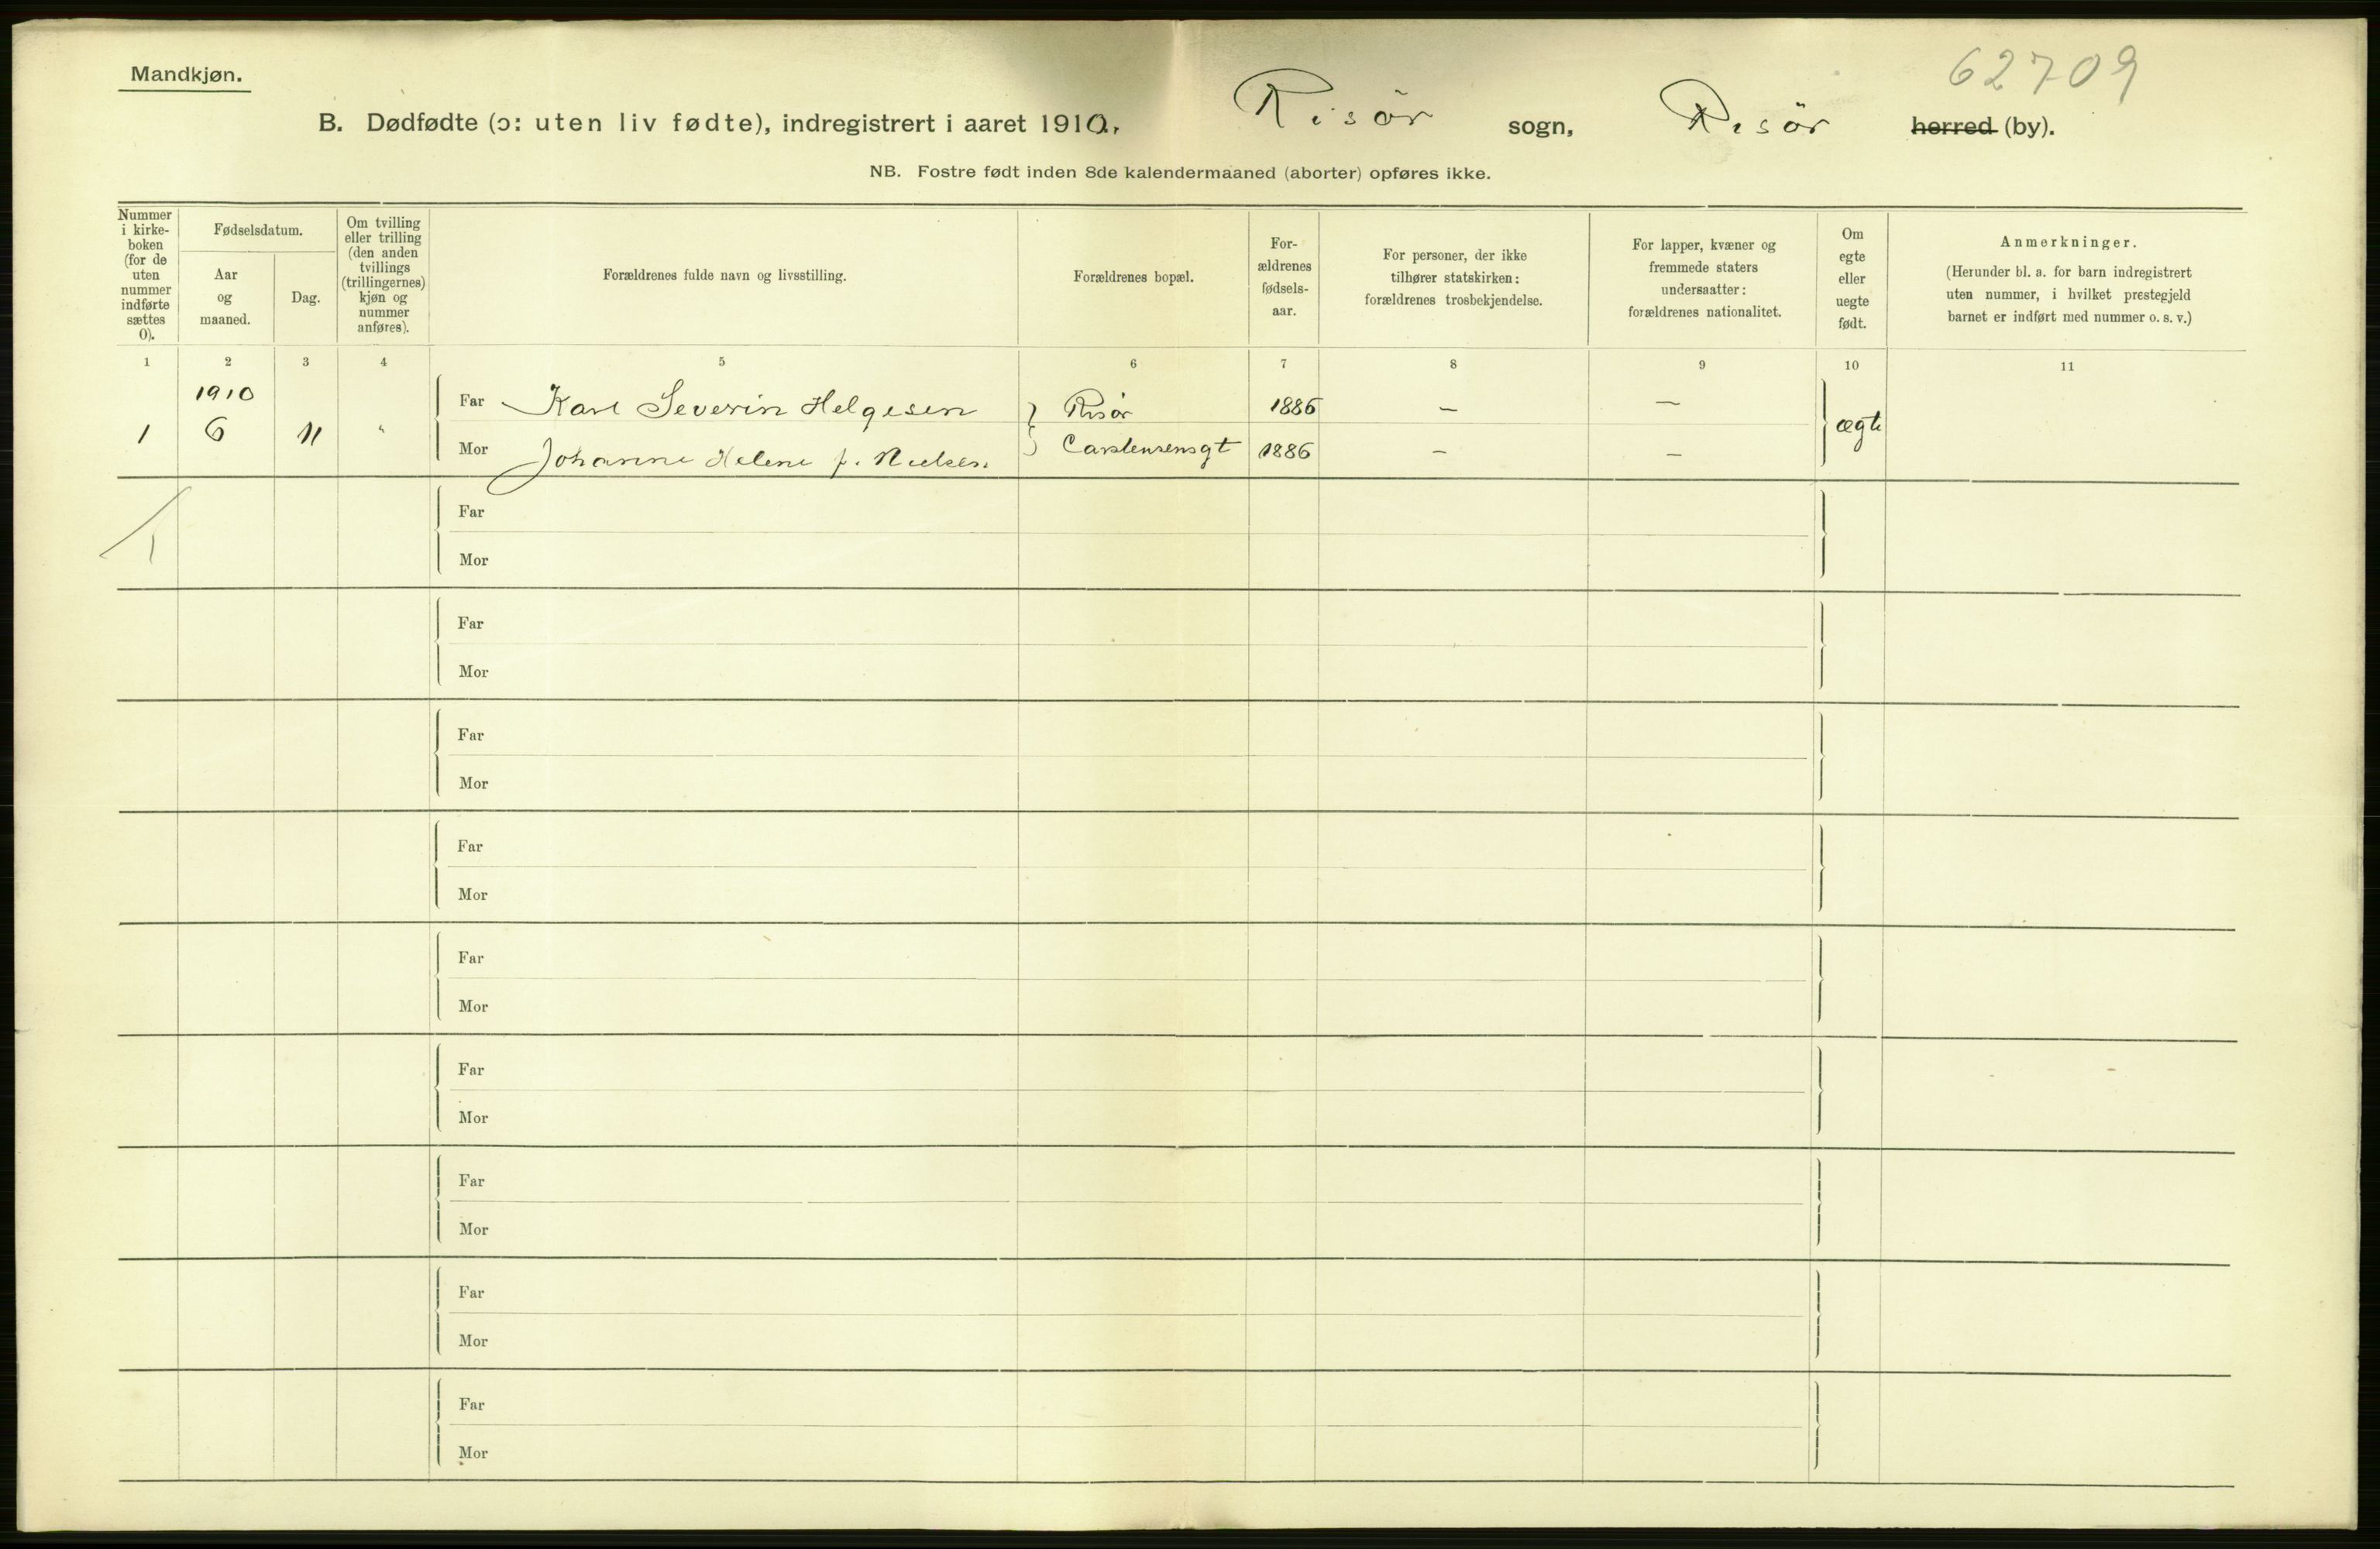 62709
Mandkjøn.
B. Dødfødte (ɔ: uten liv fødte), indregistrert i aaret 1910. Risör sogn, Risör herred (by).
NB. Fostre født inden 8de kalendermaaned (aborter) opføres ikke.
Nummer i kirke-boken (for de uten nummer indførte sættes 0).
Fødselsdatum.
Aar og maaned.
Dag.
Om tvilling eller trilling (den anden tvillings (trillingernes) kjøn og nummer anføres).
Forældrenes fulde navn og livsstilling.
Forældrenes bopæl.
For-ældrenes fødsels-aar.
For personer, der ikke tilhører statskirken: forældrenes trosbekjendelse.
For lapper, kvæner og fremmede staters undersaatter: forældrenes nationalitet.
Om egte eller uegte født.
Anmerkninger.
(Herunder bl. a. for barn indregistrert uten nummer, i hvilket prestegjeld barnet er indført med nummer o. s. v.)
1 2 3 4 5 6 7 8 9 10 11
1910
Far Karl Severin Helgesen Risör 1886 – –
1 6 11 " ægte
Mor Johanne Helene f. Nielsen Carstensensgt 1886 – –
1
Far
Mor
Far
Mor
Far
Mor
Far
Mor
Far
Mor
Far
Mor
Far
Mor
Far
Mor
Far
Mor